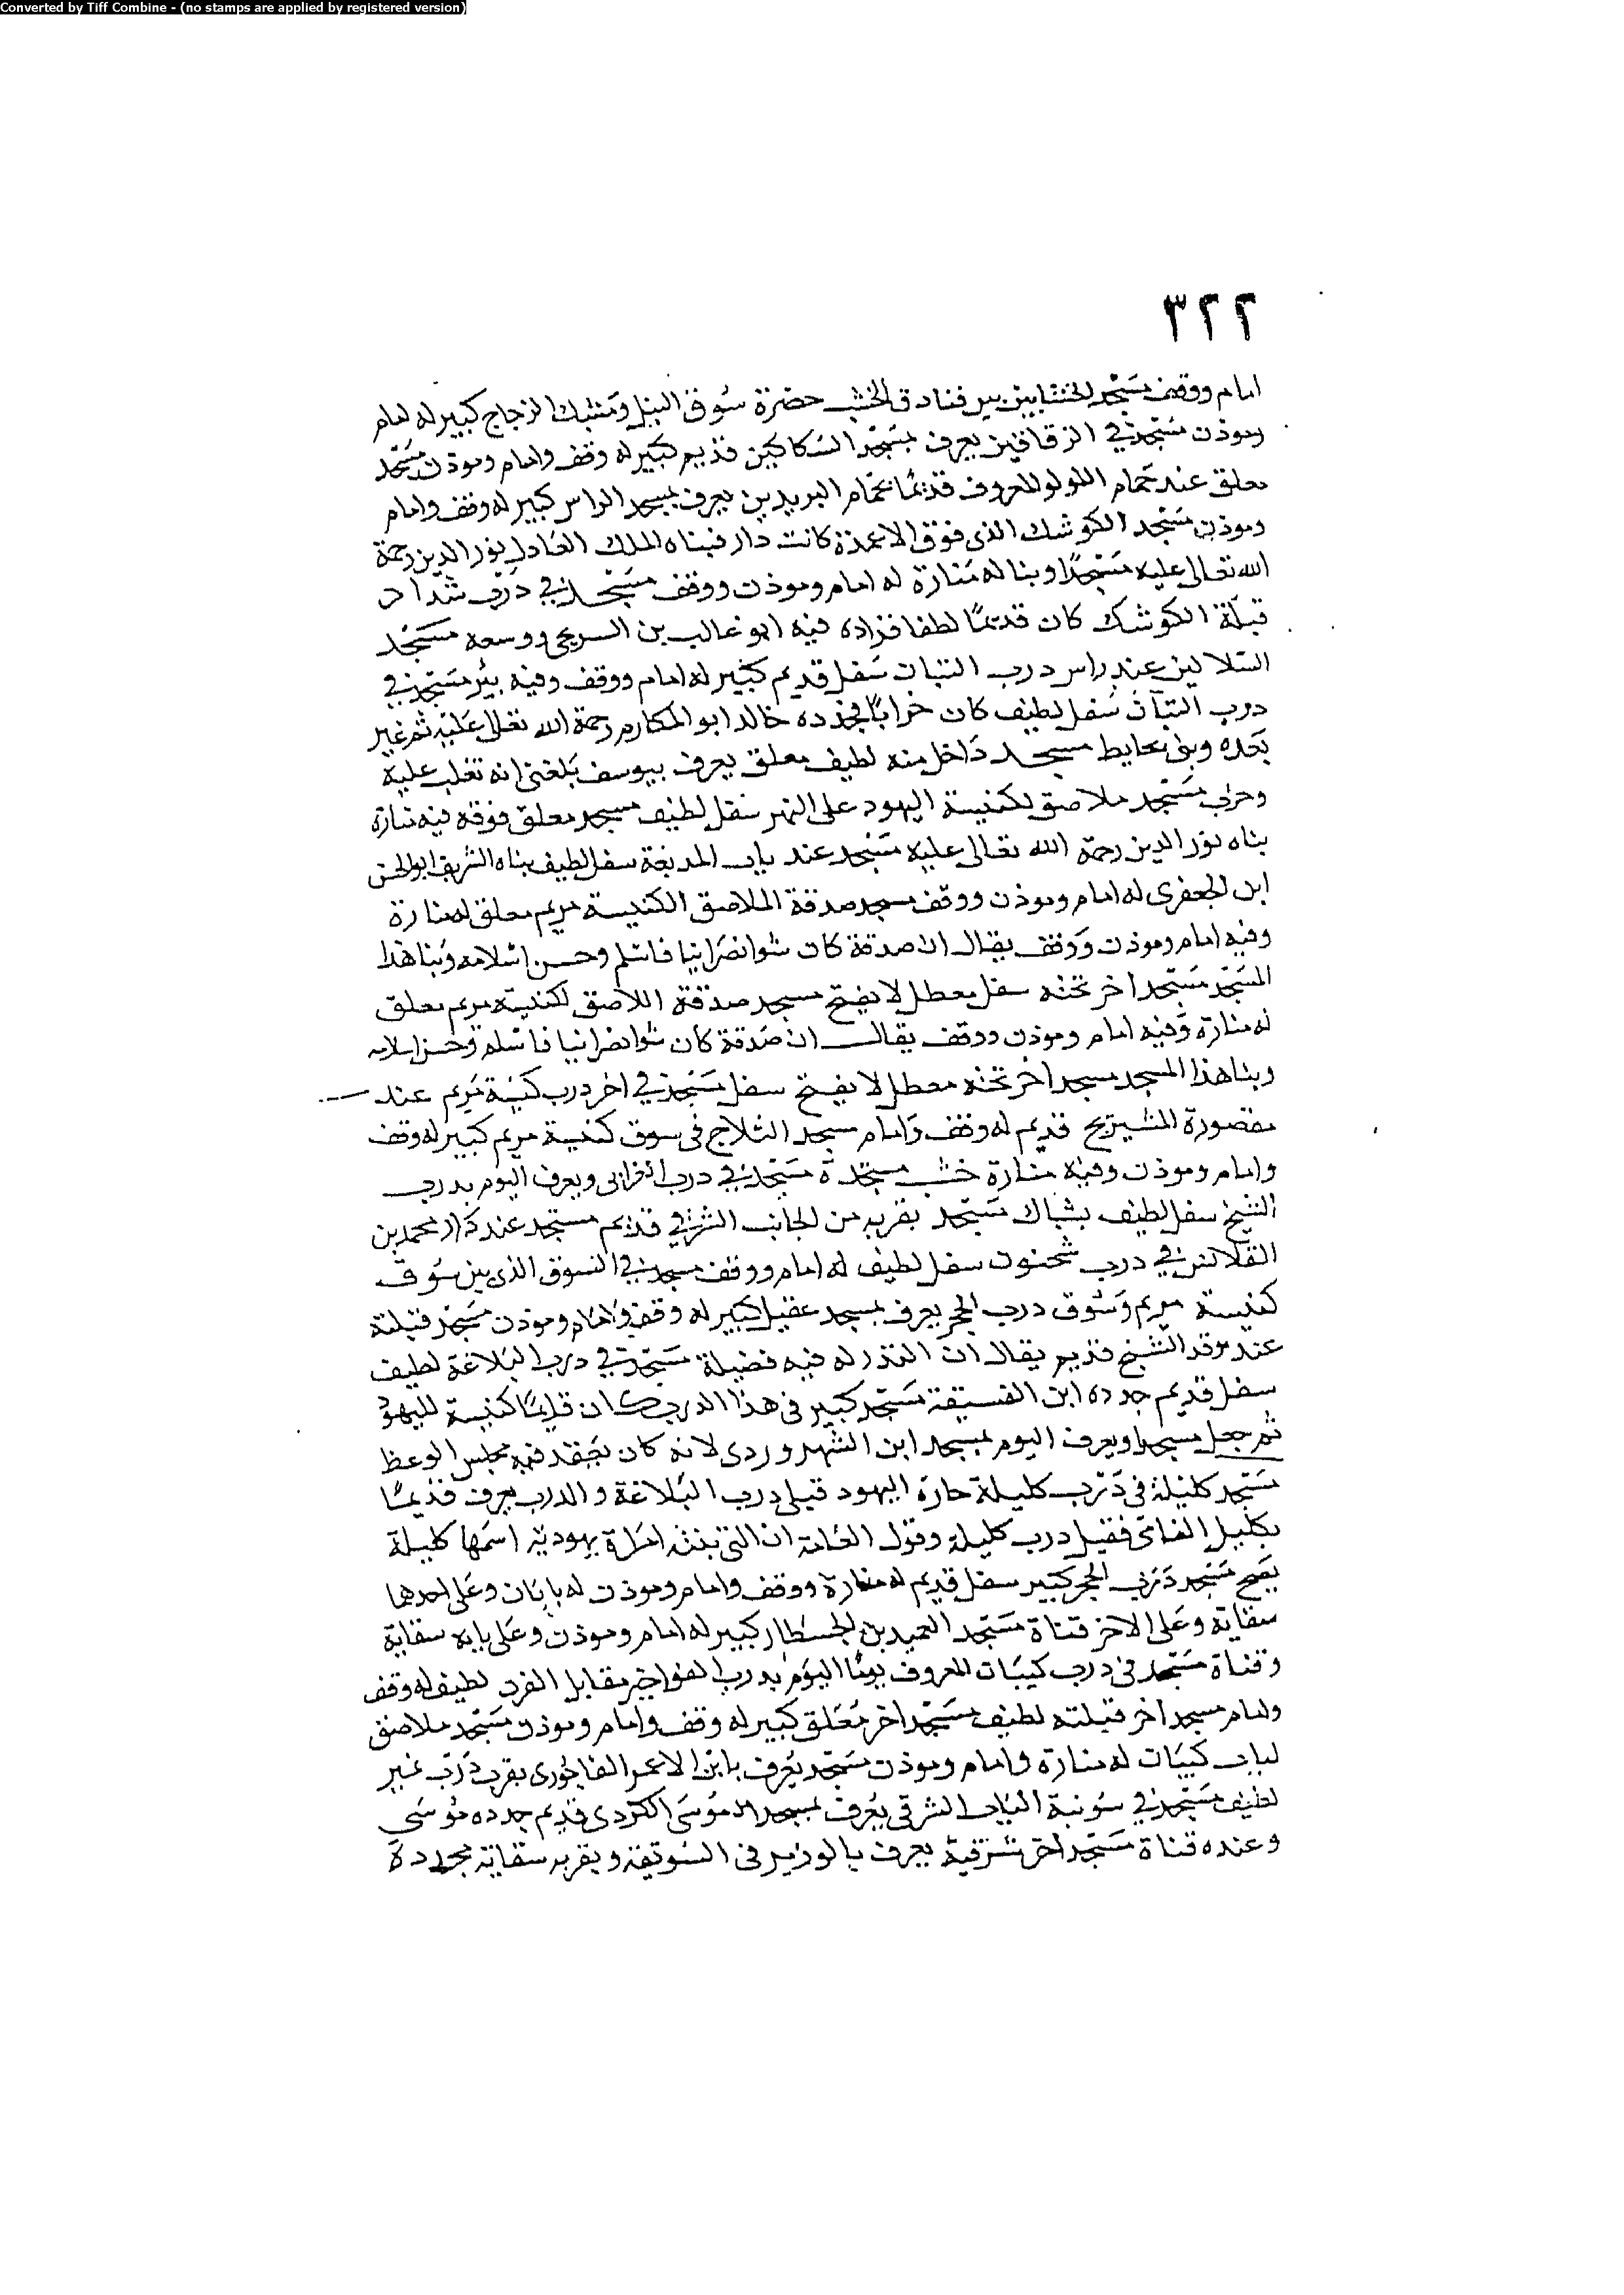 Converted by Tiff Combine - (no stamps are applied by registered version)
٣٢٢
امام ووقف مسجد الخشابين بين فنادق الخشب حضرة سوق البزل ومشبك الزجاج كبير له امام
وموذن مسجد في الزقاقين يعرف بمسجد السكاكين قديم كبير له وقف وامام وموذن مسجد
معلق عند حمام اللولو المعروف قديما بحمام البريديين يعرف بمسجد الراس كبير له وقف وامام
وموذن مسجد الكوشك الذي فوق الاعمدة كانت دار فبناه الملك العادل نور الدين رحمة
الله تعالى عليه مسجدا وبنا له منارة له امام وموذن ووقف مسجد في درب شداد
قبلة الكوشك كان قديما لطفا فزاده فيه ابو غالب بن السريجي ووسعه مسجد
السلالين عند راس درب التبان سفل قديم كبير له امام ووقف وفيه بئر مسجد في
درب التبان سفل لطيف كان خرابا فجدده خالد ابو المكارم رحمة الله تعالى عليه ثم غير
بحده وبنى بحايط مسجد داخل منه لطيف معلق يعرف بيوسف بلغني انه تغلب عليه
وخرب مسجد ملاصق لكنيسة اليهود على النهر سفل لطيف مسجد معلق فوقه فيه منارة
بناه نور الدين رحمة الله تعالى عليه مسجد عند باب المدبغة سفل لطيف بناه الشريف ابو الحسن
ابن الجعفري له امام وموذن ووقف مسجد صدقة الملاصق الكنيسة مريم معلق له منارة
وفيه امام وموذن ووقف يقال ان صدقة كان شوا نصرانيا فاسلم وحسن اسلامه وبنا هذا
المسجد مسجد اخر تحته سفل معطل لا يفتح مسجد صدقة اللاصق لكنيسة مريم معلق
له منارة وفيه امام وموذن ووقف يقال ان صدقة كان شوا نصرانيا فاسلم وحسن اسلامه
وبنا هذا المسجد مسجد اخر تحته معطل لا يفتح سفل مسجد في اخر درب كنيسة مريم عند
مقصورة قديم له وقف وامام مسجد الثلاج في سوق كنيسة مريم كبير له وقف
وامام وموذن وفيه منارة خشب مستجدة مسجد في درب ويعرف اليوم بدرب
الشيخ سفل لطيف بشباك مسجد بقربه من الجانب الشرقي قديم مسجد عند دار محمد بن
القلانسي في درب سفل لطيف له امام ووقف مسجد في السوق الذي بين سوق
كنيسة مريم وسوق درب الحجر يعرف بمسجد عقيل كبير له وقف وامام وموذن مسجد قبلته
عند موقد الشيخ قديم يقال ان النذر له فيه فضيلة مسجد في درب البلاغة لطيف
سفل قديم جدده ابن الفسيقة مسجد كبير في هذا الدرب كان قديما كنيسة لليهود
ثم جعل مسجدا ويعرف اليوم بمسجد ابن الشهروردي لانه كان يعقد فيه مجلس الوعظ
مسجد كليلة في درب كليلة حارة اليهود قبلي درب البلاغة والدرب يعرف قديما
بكليل الفامي فقيل درب كليلة وقول العامة ان التي بنته امراة يهودية اسمها كليلة
يصح مسجد درب الحجر كبير سفل قديم له منارة ووقف وامام وموذن له بابان وعلى احدها
سقاية وعلى الاخر قناة مسجد العميد بن الجسطار كبير له امام وموذن وعلى بابه سقاية
وقناة مسجد في درب كيسان المعروف بوما اليوم بدرب مقابل الفرن لطيف له وقف
وامام مسجد اخر قبلته لطيف مسجد اخر معلق كبير له وقف وامام وموذن مسجد ملاصق
لباب كيسان له منارة وامام وموذن مسجد يعرف بابن الاعمر الفاخوري بقرب درب عنبر
لطيف مسجد في الباب الشرقي يعرف بمسجد موسى الكردي قديم جدده موسى
وعنده قناة مسجد اخر شرقية يعرف بالوزير في السويقة وبقربه سقاية مجددة